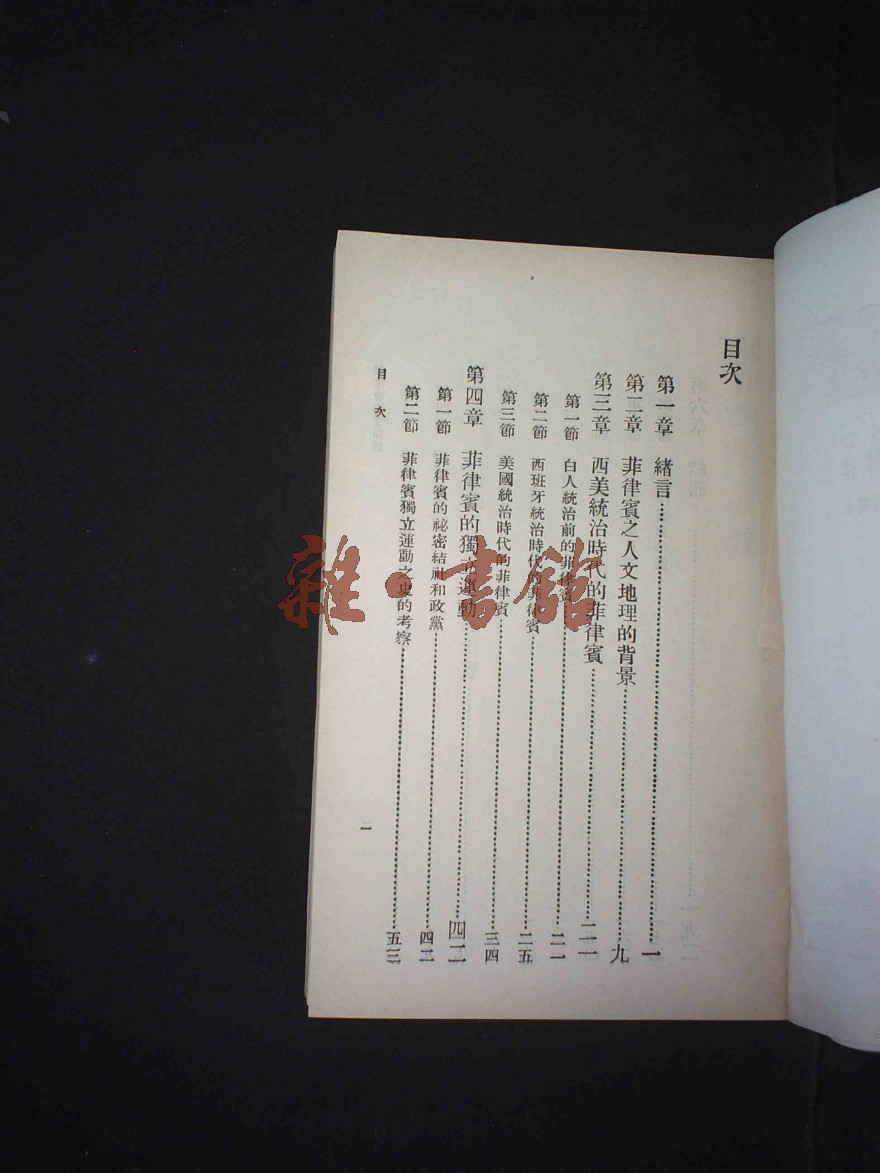 目次
第一章 緒言……一
第二章 菲律賓之人文地理的背景……九
第三章 西美統治時代的菲律賓……二一
第一節 白人統治前的菲律賓……二一
第二節 西班牙統治時代的菲律賓……二五
第三節 美國統治時代的菲律賓……三四
第四章 菲律賓的獨立運動……四二
第一節 菲律賓的祕密結社和政黨……四二
第二節 菲律賓獨立運動之史的考察……五三
目次
一
雜·書館